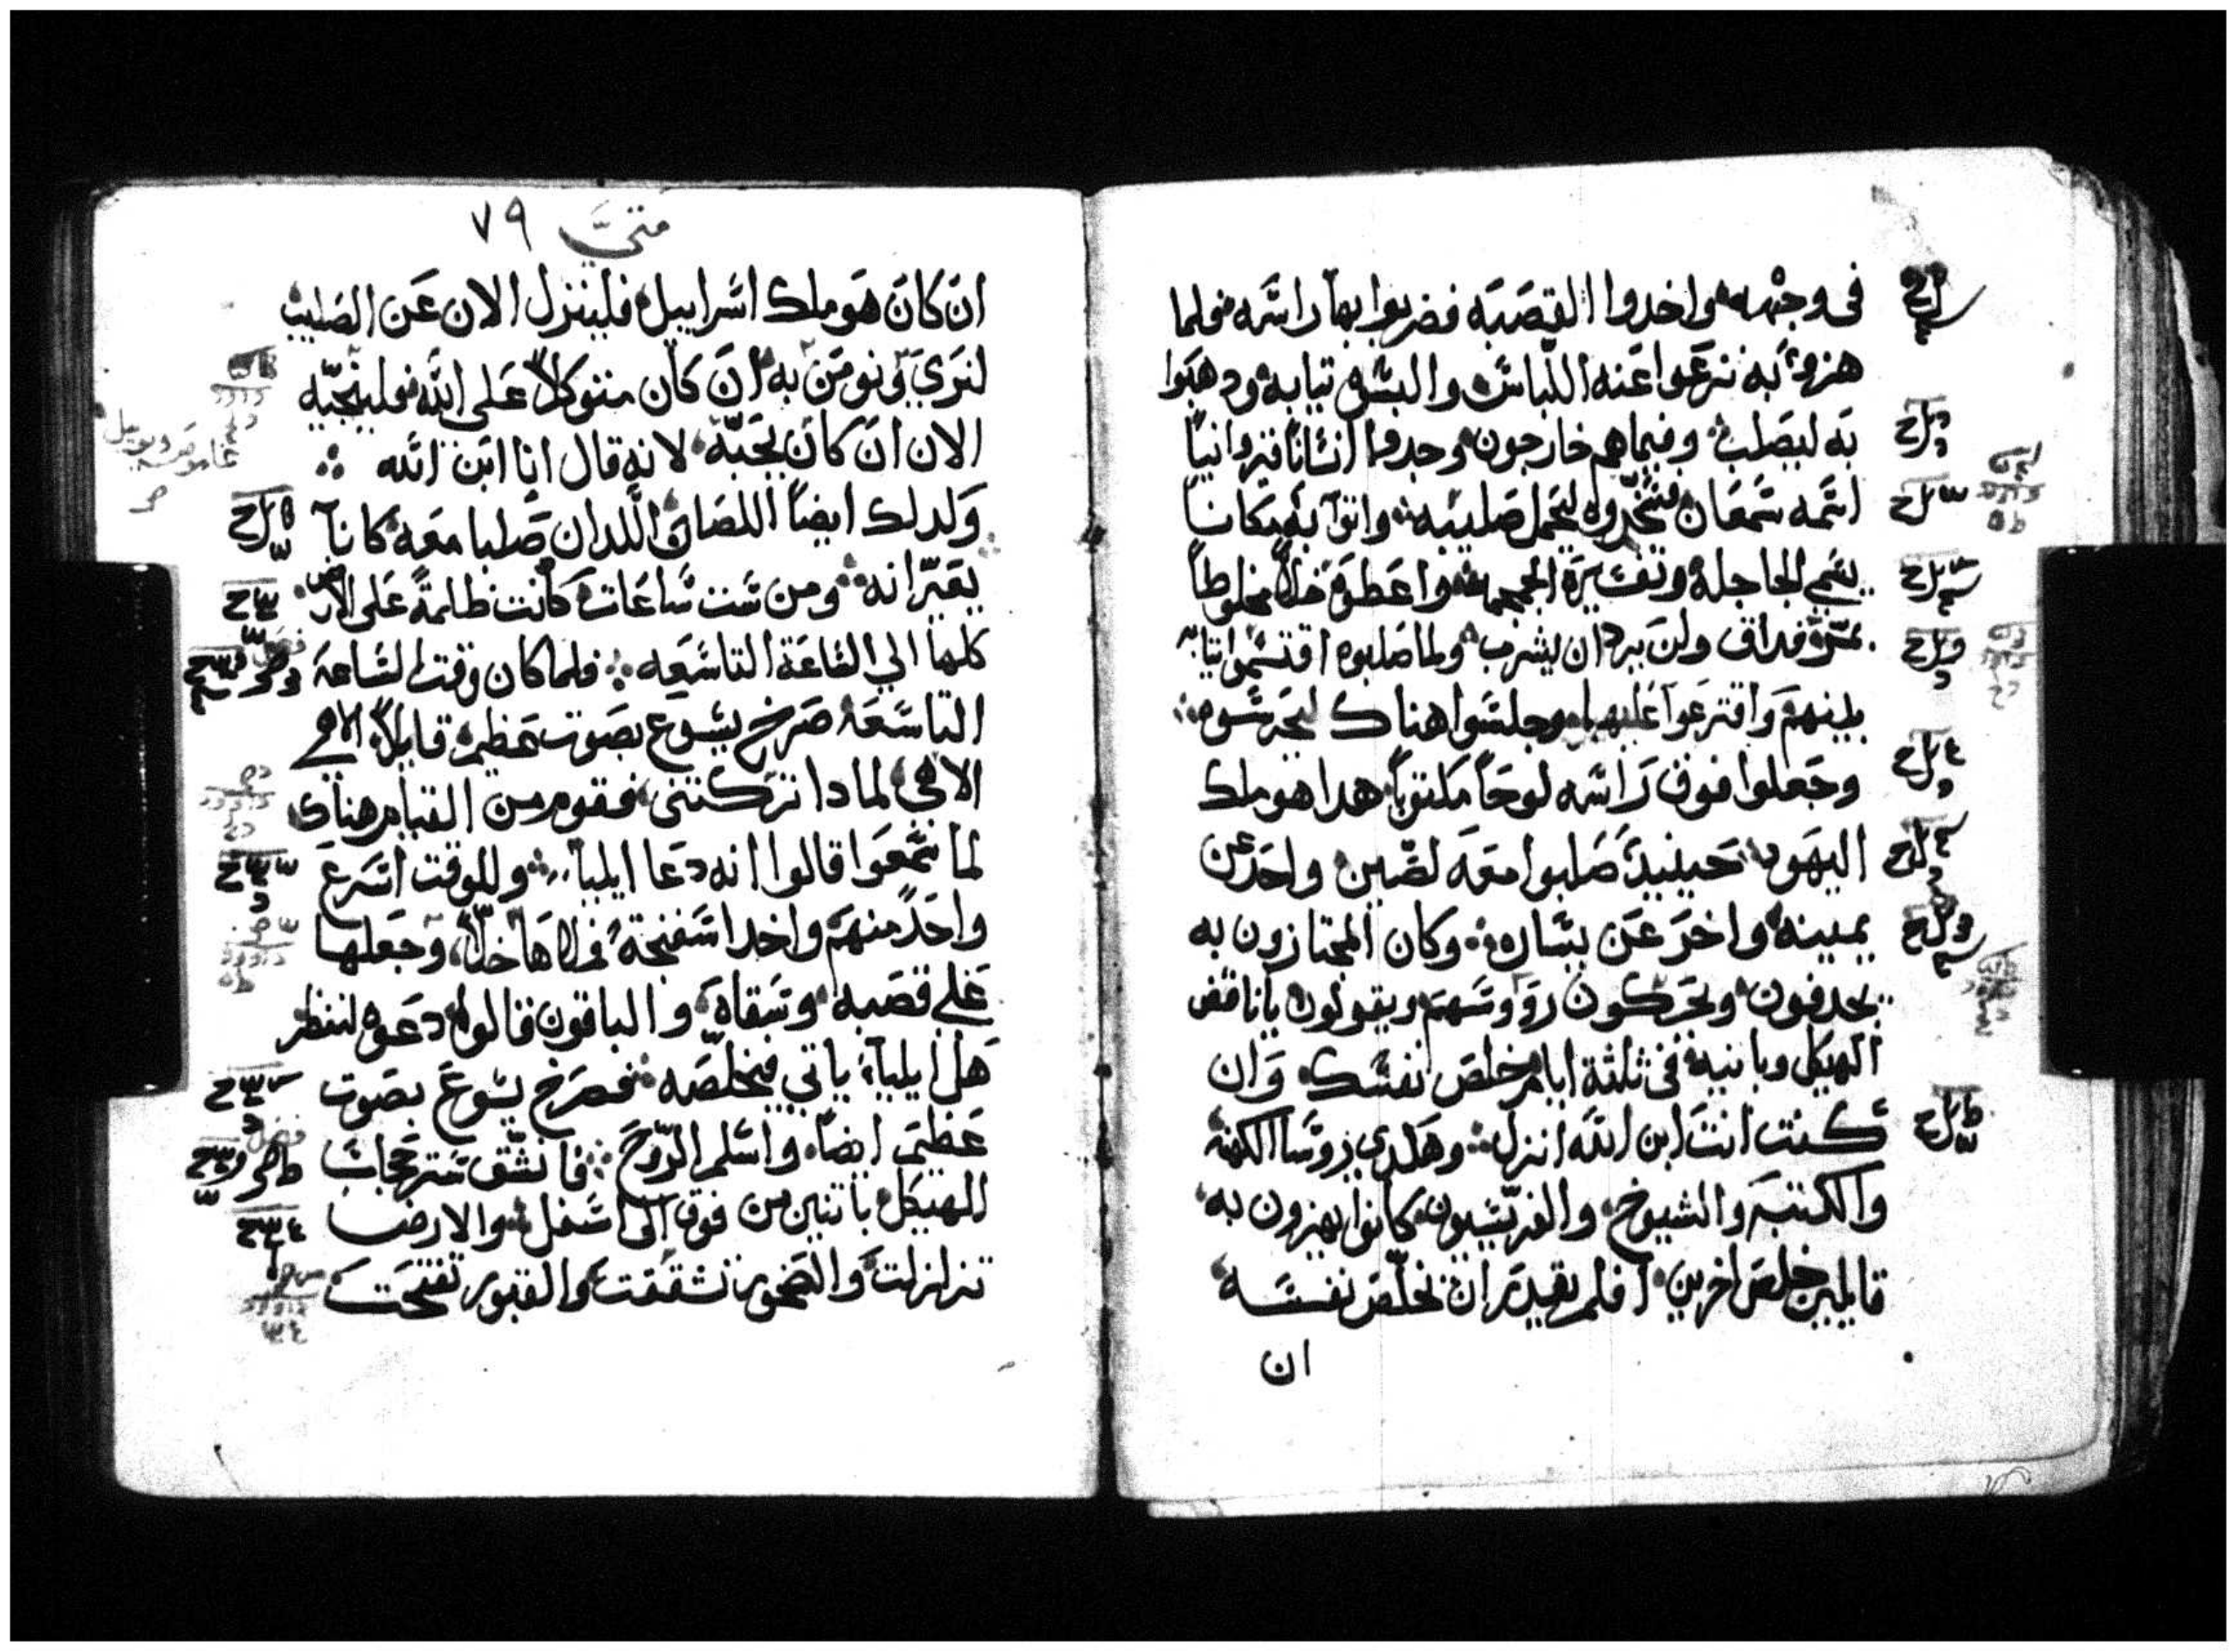 فى وجهه واخدوا القصبه فضربوا بها راسه فلما
هزوا به نزعوا عنه اللباس والبسوه تيابه ودهبوا
به ليصلب وفيما هم خارجون وجدوا انسانا قيروانيا
اسمه سمعان فسخروه ليحمل صليبه واتوا به مكانا
يسمي الجاجله وتفسيره الجمجمه واعطوه خلا مخلوطا
بمرة فداق ولن يرد ان يشرب ولما صلبوه اقتسموا تيابه
بينهم واقترعوا عليها وجلسوا هناك ليحرسوه
وجعلوا فوق راسه لوحا مكتوبا هدا هو ملك
اليهود حينيد صلبوا معه لصين واحد عن
يمينه واخر عن يساره وكان المجتازون به
يجدفون ويحركون رووسهم ويقولون ياناقض
الهيكل وبانيه فى ثلثة ايام خلص نفسك وان
كنت انت ابن الله انزل وهكدي روسا الكهنه
والكتبه والشيوخ والفريسيون كانوا يهزون به
قايلين خلص اخرين افلم يقدر ان يخلص نفسه
ان
متي ٧٩
ان كان هو ملك اسراييل فلينزل الان عن الصليب
لنري ونومن به ان كان متوكلا على الله فلينجيه
الان ان كان يحبه لانه قال انا ابن الله
وكدلك ايضا اللصان اللدان صلبا معه كانا
يعيرانه ومن ست ساعات كانت ظلمة على الارض
كلها الي الساعة التاسعه فلما كان وقت الساعة
التاسعه صرخ يسوع بصوت عظيم قايلا الاهي
الاهي لمادا تركتني فقوم من القيام هناك
لما سمعوا قالوا انه دعا ايليا وللوقت اسرع
واحد منهم واخد اسفنجة فملاها خلا وجعلها
علي قصبه وسقاه والباقون قالوا دعوه لننظر
هل ايليا ياتي فيخلصه فصرخ يسوع بصوت
عظيم ايضا واسلم الروح فانشق ستر حجاب
الهيكل باتنين من فوق الى اسفل والارض
تزلزلت والصخور تشققت والقبور تفتحت